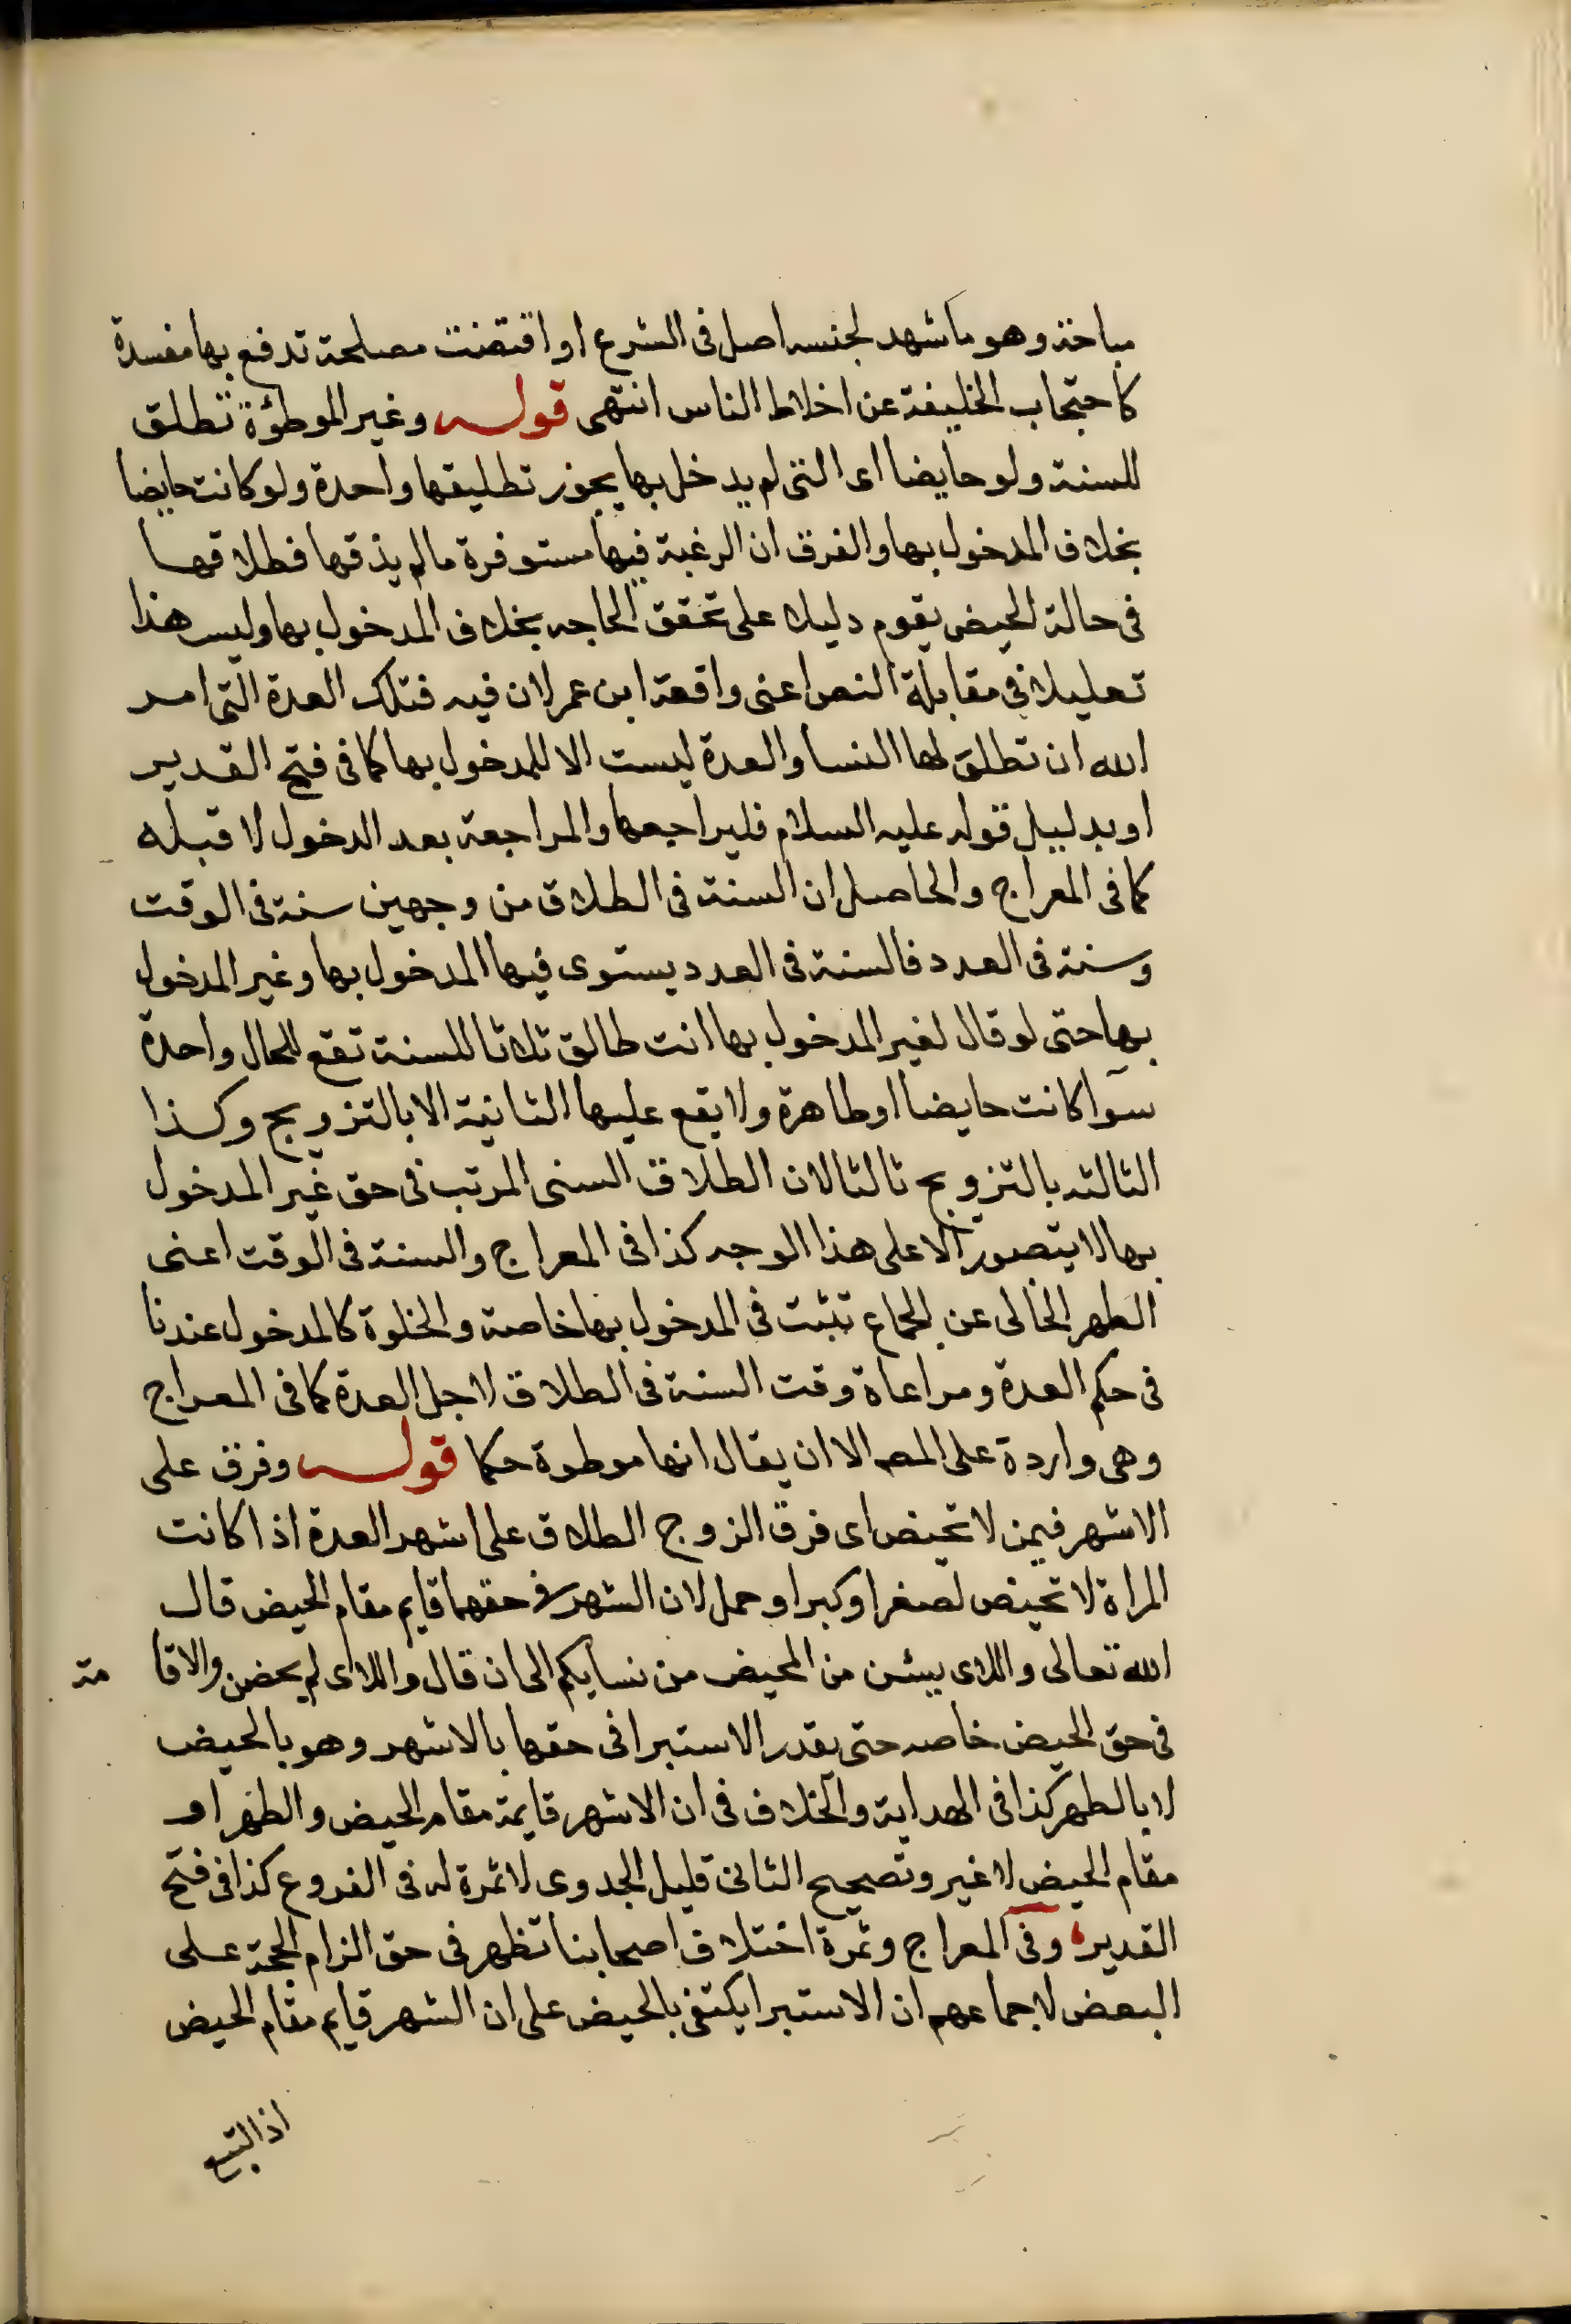 مباحة وهو ما شهد لجنسه اصل فى الشرع او اقتضت مصلحة تدفع بها مفسدة
كاحتجاب الخليفة عن اخلاط الناس انتهى قوله وغير الموطؤة تطلق
للسنة ولو حايضا اى التى لم يدخل بها يجوز تطليقها واحدة ولو كانت حايضا
بخلاف المدخول بها والفرق ان الرغبة فيها مستوفرة ما لم يذقها فطلاقها
فى حالة الحيض يقوم دليلا على تحقق الحاجه بخلاف المدخول بها وليس هذا
تعليلا فى مقابلة النص اعنى واقعة ابن عمر لان فيه فتلك العدة التى امر
الله ان تطلق لها النسا والعدة ليست الا للمدخول بها كما فى فتح القدير
او بدليل قوله عليه السلام فليراجعها والمراجعة بعد الدخول لا قبله
كما فى المعراج والحاصل ان السنة فى الطلاق من وجهين سنة فى الوقت
وسنة فى العدد فالسنة فى العدد يستوى فيها المدخول بها وغير المدخول
بها حتى لو قال لغير المدخول بها انت طالق ثلاثا للسنة تقع للحال واحدة
سوآ كانت حايضا او طاهرة ولا يقع عليها الثانية الا بالتزويج وكذا
الثالثه بالتزويج ثالثا لان الطلاق السنى المرتب فى حق غير المدخول
بها لا يتصور الا على هذا الوجه كذا فى المعراج والسنة فى الوقت اعنى
الطهر الخالى عن الجماع تثبت فى المدخول بها خاصة والخلوة كالمدخول عندنا
فى حكم العدة ومراعاة وقت السنة فى الطلاق لاجل العدة كما فى المعراج
وهى واردة على المصـ الا ان يقال انها موطوة حكما قوله وفرق على
الاشهر فيمن لا تحيض اى فرق الزوج الطلاق على اشهر العدة اذا كانت
المراة لا تحيض لصغر او كبر او حمل لان الشهر فى حقهما قايم مقام الحيض قال
الله تعالى واللاى يئسن من المحيض من نسايكم الى ان قال واللاى لم يحضن والاقا مة
فى حق الحيض خاصه حتى يقدر الاستبرا فى حقها بالاشهر وهو بالحيض
لا بالطهر كذا فى الهداية والخلاف فى ان الاشهر قايمة مقام الحيض والطهر او
مقام الحيض لا غير وتصحيح الثانى قليل الجدوى لا ثمرة له فى الفروع كذا فى فتح
القدير وفى المعراج وثمرة اختلاف اصحابنا تظهر فى حق الزام الحجة على
البعض لاجماعهم ان الاستبرا يكتفى بالحيض على ان الشهر قايم مقام الحيض